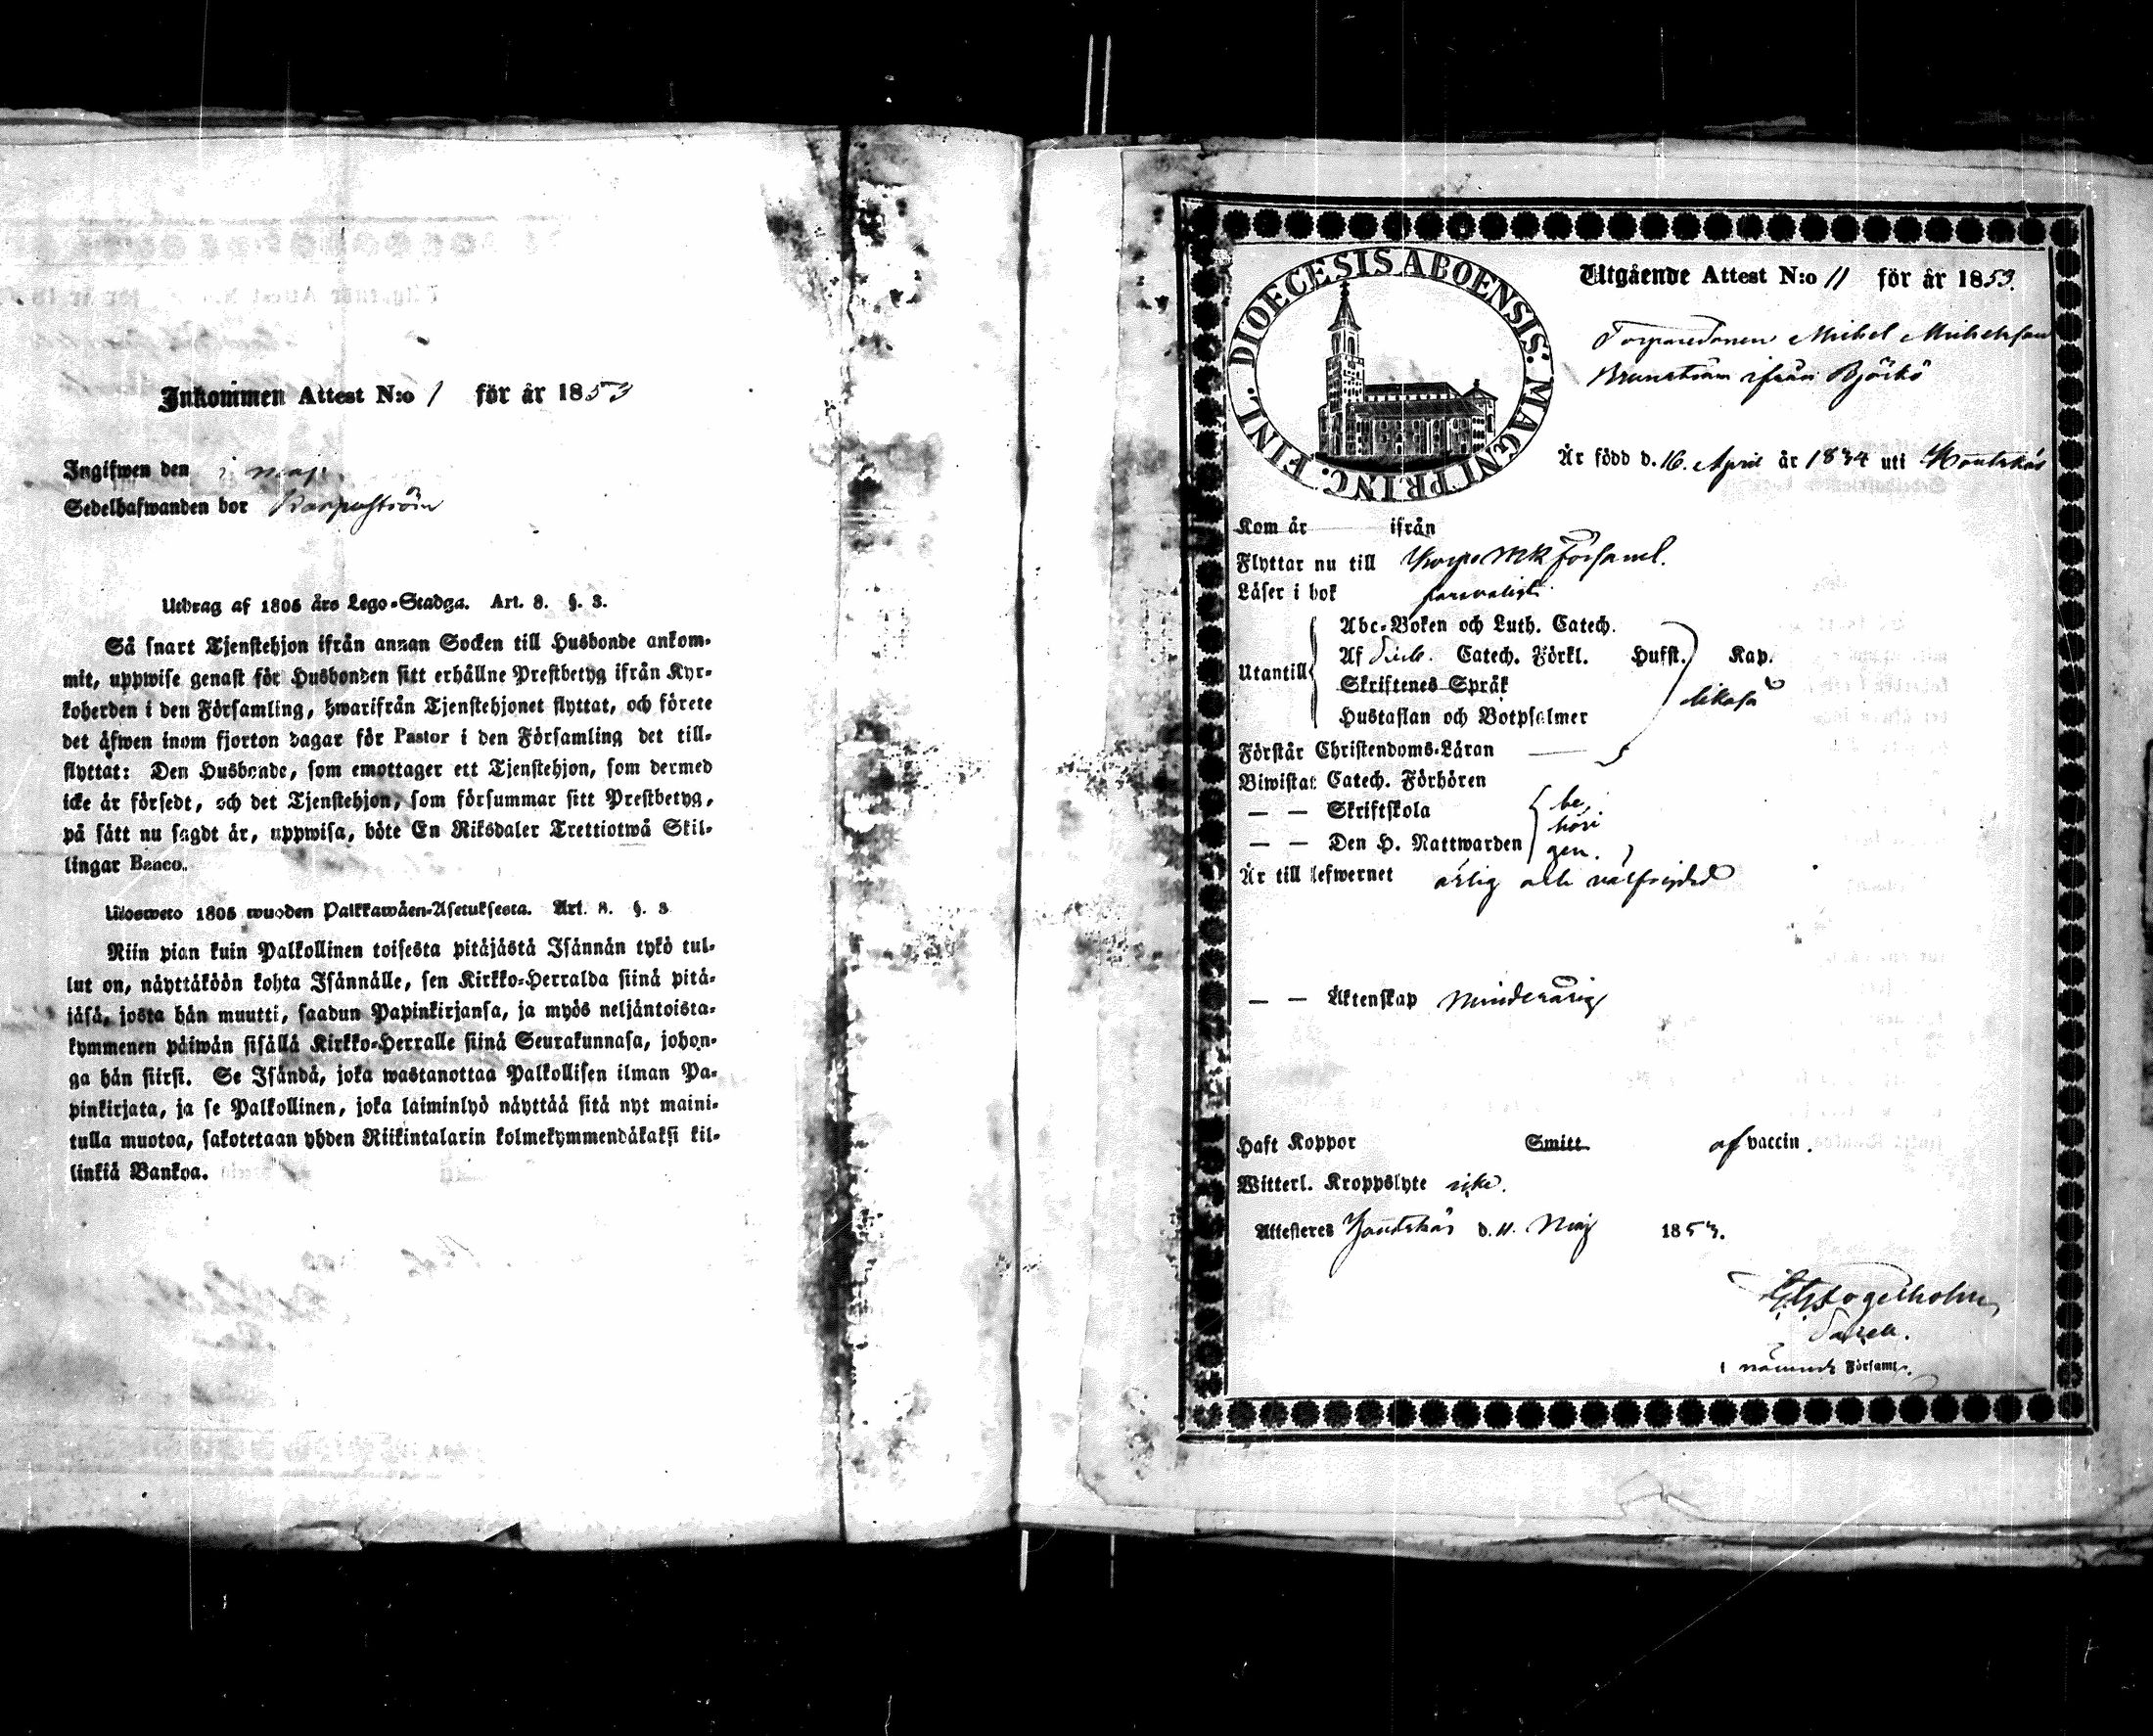 Inkommen Attest N:o 1 för år 1853
Ingifwen den i maji
Sedelhafwanden bor
Utdrag af 1805 års Lego-Stadga. Art. 8. §. 3.
Så snart Tjenstehjon ifrån annan Socken till Husbonde ankom-
mit, uppwise genast för Husbonden sitt erhållne Prestbetyg ifrån Kyr-
koherden i den Församling, hwarifrån Tjenstehjonet flyttat, och förete
det äfwen inom fjorton dagar för Pastor i den Församling det till-
flyttat: Den Husbonde, som emottager ett Tjenstehjon, som dermed
icke är försedt, och det Tjenstehjon, som försummar sitt Prestbetyg,
på sätt nu sagdt är, uppwisa, böte En Riksdaler Trettiotwå Skil-
lingar Banco.
Ulosweto 1805 wuoden Palkkawäen-Asetuksesta. Art. 8. §. 3
Niin pian kuin Palkollinen toisesta pitäjästä Isännän tykö tul-
lut on, näyttäköön kohta Isännälle, sen Kirkko-Herralda siinä pitä-
jäsä, josta hän muutti, saadun Papinkirjansa, ja myös neljäntoista-
kymmenen päiwän sisällä Kirkko-Herralle siinä Seurakunnasa, johon-
ga hän siirsi. Se Isändä, joka wastanottaa Palkollisen ilman Pa-
pinkirjata, ja se Palkollinen, joka laiminlyö näyttää sitä nyt maini-
tulla muotoa, sakotetaan yhden Riikintalarin kolmekymmendäkaksi kil-
linkiä Bankoa.
DIOECESIS ABOENSIS: MAGNI PRINC. FINL.
Utgående Attest N:o 11 för år 1853.
Torparesonen Michel Michelsson
Brunström ifrån Björkö
Är född d. 16. April år 1834 uti Houtskär
Kom år ifrån
Flyttar nu till Korpo Församl.
Läser i bok försvarligt
Abc-Boken och Luth. Catech.
Af Catech. Förkl. Hufst. Kap.
Utantill
Skriftenes Språk
likaså
Hustaflan och Botpsalmer
Förstår Christendoms-Läran
Biwistat Catech. Förhören
— — Skriftskola
be,
höri
— — Den H. Nattwarden
gen.
Är till lefwernet ärlig och välfrejdad
— — Äktenskap minderårig
Haft Koppor Smitt af vaccin.
Witterl. Kroppslyte icke.
Attesteres Houtskär d. 11. Maj 1853.
Fogelholm
i nämnde Församl.